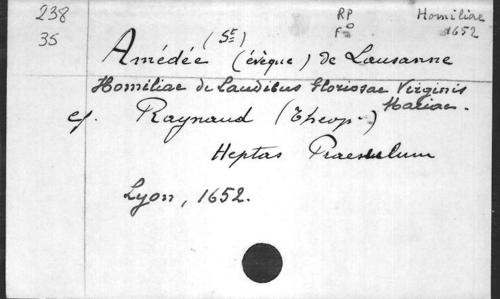 238
35
RP
Fº
Homiliae
1652
(St)
Amédée (évêque) de Lausanne
Homiliae de Laudibus Gloriosae Virginis
Mariae.
cf. Raynaud (Theop.)
Heptas Praesulum
Lyon, 1652.